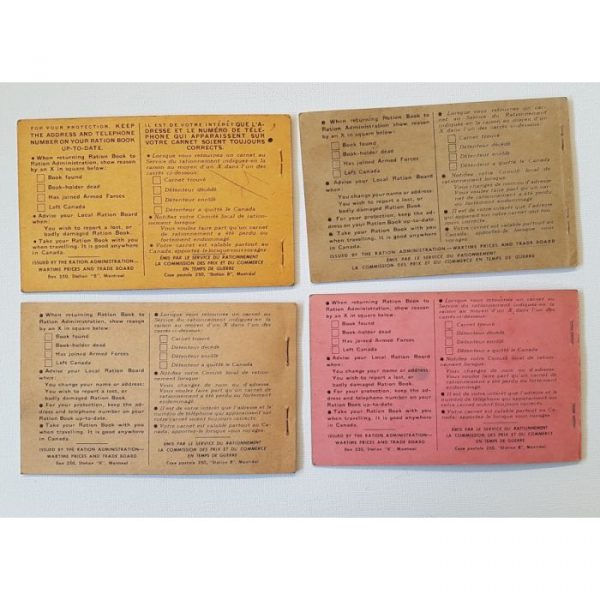 FOR YOUR PROTECTION, KEEP
THE ADDRESS AND TELEPHONE
NUMBER ON YOUR RATION BOOK
UP-TO-DATE.
● When returning Ration Book to
Ration Administration, show reason
by an X in square below:
Book found
Book-holder dead
Has joined Armed Forces
Left Canada
● Advise your Local Ration Board
when:
You wish to report a lost, or
badly damaged Ration Book.
● Take your Ration Book with you
when travelling. It is good anywhere
in Canada.
ISSUED BY THE RATION ADMINISTRATION—
WARTIME PRICES AND TRADE BOARD
Box 250, Station "B", Montreal
IL EST DE VOTRE INTÉRÊT QUE L'A-
DRESSE ET LE NUMÉRO DE TÉLÉ-
PHONE QUI APPARAISSENT SUR
VOTRE CARNET SOIENT TOUJOURS
CORRECTS.
● Lorsque vous retournez un carnet au
Service du rationnement indiquez-en la
raison au moyen d'un X dans l'un des
carrés ci-dessous:
Carnet trouvé
Détenteur décédé
Détenteur enrôlé
Détenteur a quitté le Canada
● Notifiez votre Comité local de ration-
nement lorsque
Vous voulez faire part qu'un carnet
de rationnement a été perdu ou
fortement endommagé.
● Votre carnet est valable partout au
Canada; apportez-le lorsque vous voyagez.
ÉMIS PAR LE SERVICE DU RATIONNEMENT
LA COMMISSION DES PRIX ET DU COMMERCE
EN TEMPS DE GUERRE
Case postale 250, "Station B", Montréal
● When returning Ration Book to
Ration Administration show reason
by an X in square below:
Book found
Book-holder dead
Has joined Armed Forces
Left Canada
● Advise your Local Ration Board
when:
You change your name or address:
You wish to report a lost, or
badly damaged Ration Book.
● For your protection, keep the ad-
dress on your Ration Book up-to-date
● Take your Ration Book with you
when travelling. It is good anywhere
in Canada.
Lorsque vous retournez un carnet au
Service du Rationnement
raison au moyen d'un X dans l'un des
carrés ci-dessous:
Carnet trouvé
Détenteur décédé
Détenteur enrôlé
Détenteur a quitté le Canada
● Notifiez votre Comité local de
rationnement lorsque
Vous changez de nom ou d'adresse
Vous voulez faire part qu'un carnet
de rationnement a été perdu ou
fortement endommagé
Votre carnet est valable partout au
Canada, apportez-le lorsque vous voyagez.
ISSUED BY THE RATION ADMINISTRATION—WARTIME PRICES AND TRADE BOARD
ÉMIS PAR LE SERVICE DU RATIONNEMENT
LA COMMISSION DES PRIX ET DU COMMERCE
EN TEMPS DE GUERRE
● When returning Ration Book to
Ration Administration, show reason
by an X in square below:
Book found
Book-holder dead
Has joined Armed Forces
Left Canada
● Advise your Local Ration Board
when:
You change your name or address:
You wish to report a lost, or
badly damaged Ration Book.
● For your protection, keep the ad-
dress and telephone number on your
Ration Book up-to-date.
● Take your Ration Book with you
when travelling. It is good anywhere
in Canada.
ISSUED BY THE RATION ADMINISTRATION—
WARTIME PRICES AND TRADE BOARD
Box 250, Station "B", Montreal
● Lorsque vous retournez un carnet au
Service du rationnement indiquez-en la
raison au moyen d'un X dans l'un des
carrés ci-dessous:
Carnet trouvé
Détenteur décédé
Détenteur enrôlé
Détenteur a quitté le Canada
● Notifiez votre Comité local de ration-
nement lorsque
Vous changez de nom ou d'adresse.
Vous voulez faire part qu'un carnet
de rationnement a été perdu ou
fortement endommagé.
● Il est de votre intérêt que l'adresse et
le numéro de téléphone qui apparaissent
sur votre carnet soient toujours corrects.
● Votre carnet est valable partout au
Canada; apportez-le lorsque vous voyagez.
ÉMIS PAR LE SERVICE DU RATIONNEMENT
LA COMMISSION DES PRIX ET DU COMMERCE
EN TEMPS DE GUERRE
Case postale 250, "Station B", Montréal
● When returning Ration Book to
Ration Administration, show reason
by an X in square below:
Book found
Book-holder dead
Has joined Armed Forces
Left Canada
● Advise your Local Ration Board
when:
You change your name or address:
You wish to report a lost, or
badly damaged Ration Book.
● For your protection, keep the ad-
dress and telephone number on your
Ration Book up-to-date.
● Take your Ration Book with you
when travelling. It is good anywhere
in Canada.
ISSUED BY THE RATION ADMINISTRATION—
WARTIME PRICES AND TRADE BOARD
Box 250, Station "B", Montreal
● Lorsque vous retournez un carnet au
Service du rationnement indiquez-en la
raison au moyen d'un X dans l'un des
carrés ci-dessous:
Carnet trouvé
Détenteur décédé
Détenteur enrôlé
Détenteur a quitté le Canada
● Notifiez votre Comité local de ration-
nement lorsque
Vous changez de nom ou d'adresse.
Vous voulez faire part qu'un carnet
de rationnement a été perdu ou
fortement endommagé.
● Il est de votre intérêt que l'adresse et
le numéro de téléphone qui apparaissent
sur votre carnet soient toujours corrects.
● Votre carnet est valable partout au
Canada; apportez-le lorsque vous voyagez.
ÉMIS PAR LE SERVICE DU RATIONNEMENT
LA COMMISSION DES PRIX ET DU COMMERCE
EN TEMPS DE GUERRE
Case postale 250, "Station B", Montréal